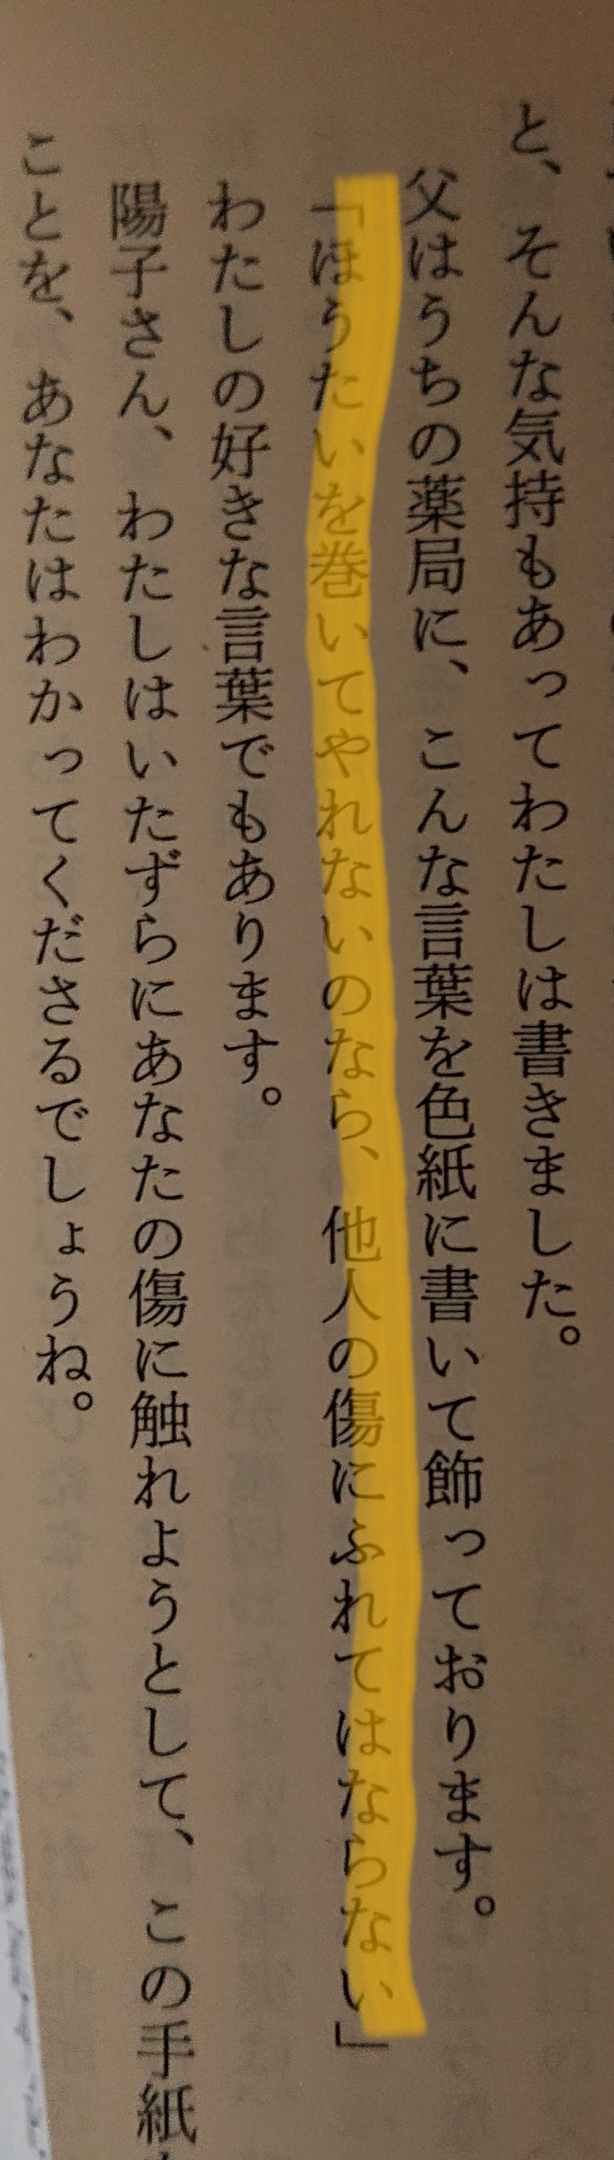 と、そんな気持もあってわたしは書きました。
父はうちの薬局に、こんな言葉を色紙に書いて飾っております。
「ほうたいを巻いてやれないのなら、他人の傷にふれてはならない」
わたしの好きな言葉でもあります。
陽子さん、わたしはいたずらにあなたの傷に触れようとして、この手紙
ことを、あなたはわかってくださるでしょうね。